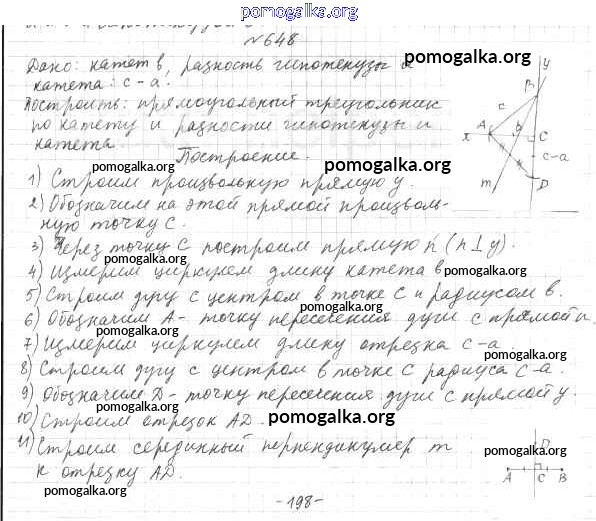 pomogalka.org
№648
Дано: катет в, разность гипотенузы и
катета: c-a.
pomogalka.org
Построить: прямоугольный треугольник
по катету и разности гипотенузы и
катета.
pomogalka.org
Построение.
pomogalka.org
1) Строим произвольную прямую y.
2) Обозначим на этой прямой произволь-
ную точку С.
pomogalka.org
3) Через точку С построим прямую n (n⊥y).
pomogalka.org
4) Измерим циркулем длину катета в
pomogalka.org
5) Строим дугу с центром в точке С и радиусом в.
pomogalka.org
6) Обозначим А - точку пересечения дуги с прямой n.
7) Измерим циркулем длину отрезка с-а.
pomogalka.org
8) Строим дугу с центром в точке С радиуса с-а.
9) Обозначим D - точку пересечения дуги с прямой y.
pomogalka.org
10) Строим отрезок AD.
pomogalka.org
11) Строим серединный перпендикуляр m
к отрезку AD.
pomogalka.org
-198-
y
B
c
A
x
C
c-a
D
m
pomogalka.org
D
A C B
pomogalka.org